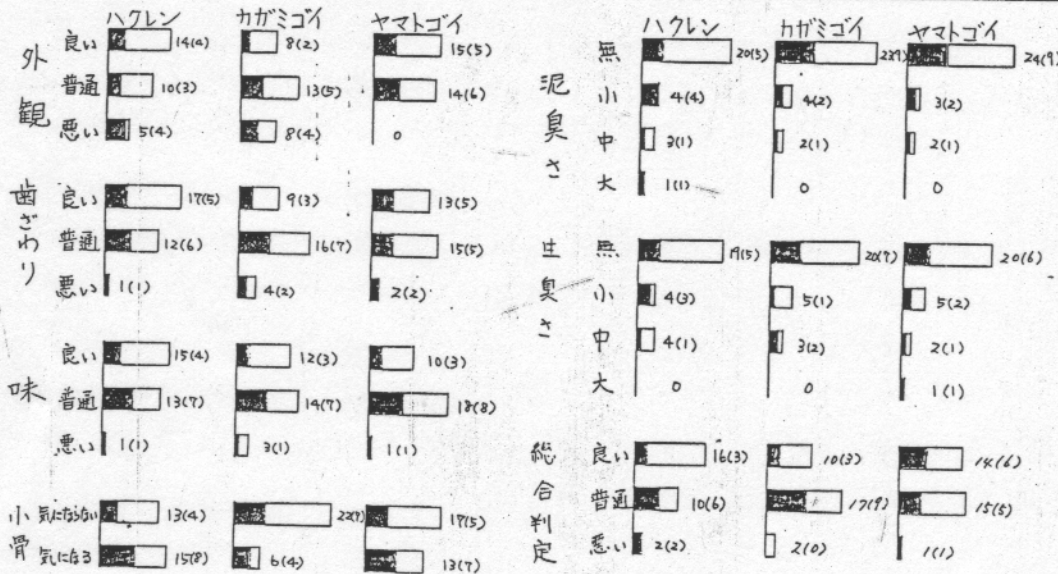 ハクレン カガミゴイ ヤマトゴイ
外観
良い 14(4) 8(2) 15(5)
普通 10(3) 13(5) 14(6)
悪い 5(4) 8(4) 0
歯ざわり
良い 17(5) 9(3) 13(5)
普通 12(6) 16(7) 15(5)
悪い 1(1) 4(2) 2(2)
味
良い 15(4) 12(3) 10(3)
普通 13(7) 14(7) 18(8)
悪い 1(1) 3(1) 1(1)
小骨
気にならない 13(4) 22(7) 17(5)
気になる 15(8) 6(4) 13(7)
ハクレン カガミゴイ ヤマトゴイ
泥臭さ
無 20(5) 22(9) 24(9)
小 4(4) 4(2) 3(2)
中 3(1) 2(1) 2(1)
大 1(1) 0 0
生臭さ
無 19(5) 20(7) 20(6)
小 4(3) 5(1) 5(2)
中 4(1) 3(2) 2(1)
大 0 0 1(1)
総合判定
良い 16(3) 10(3) 14(6)
普通 10(6) 17(9) 15(5)
悪い 2(2) 2(0) 1(1)